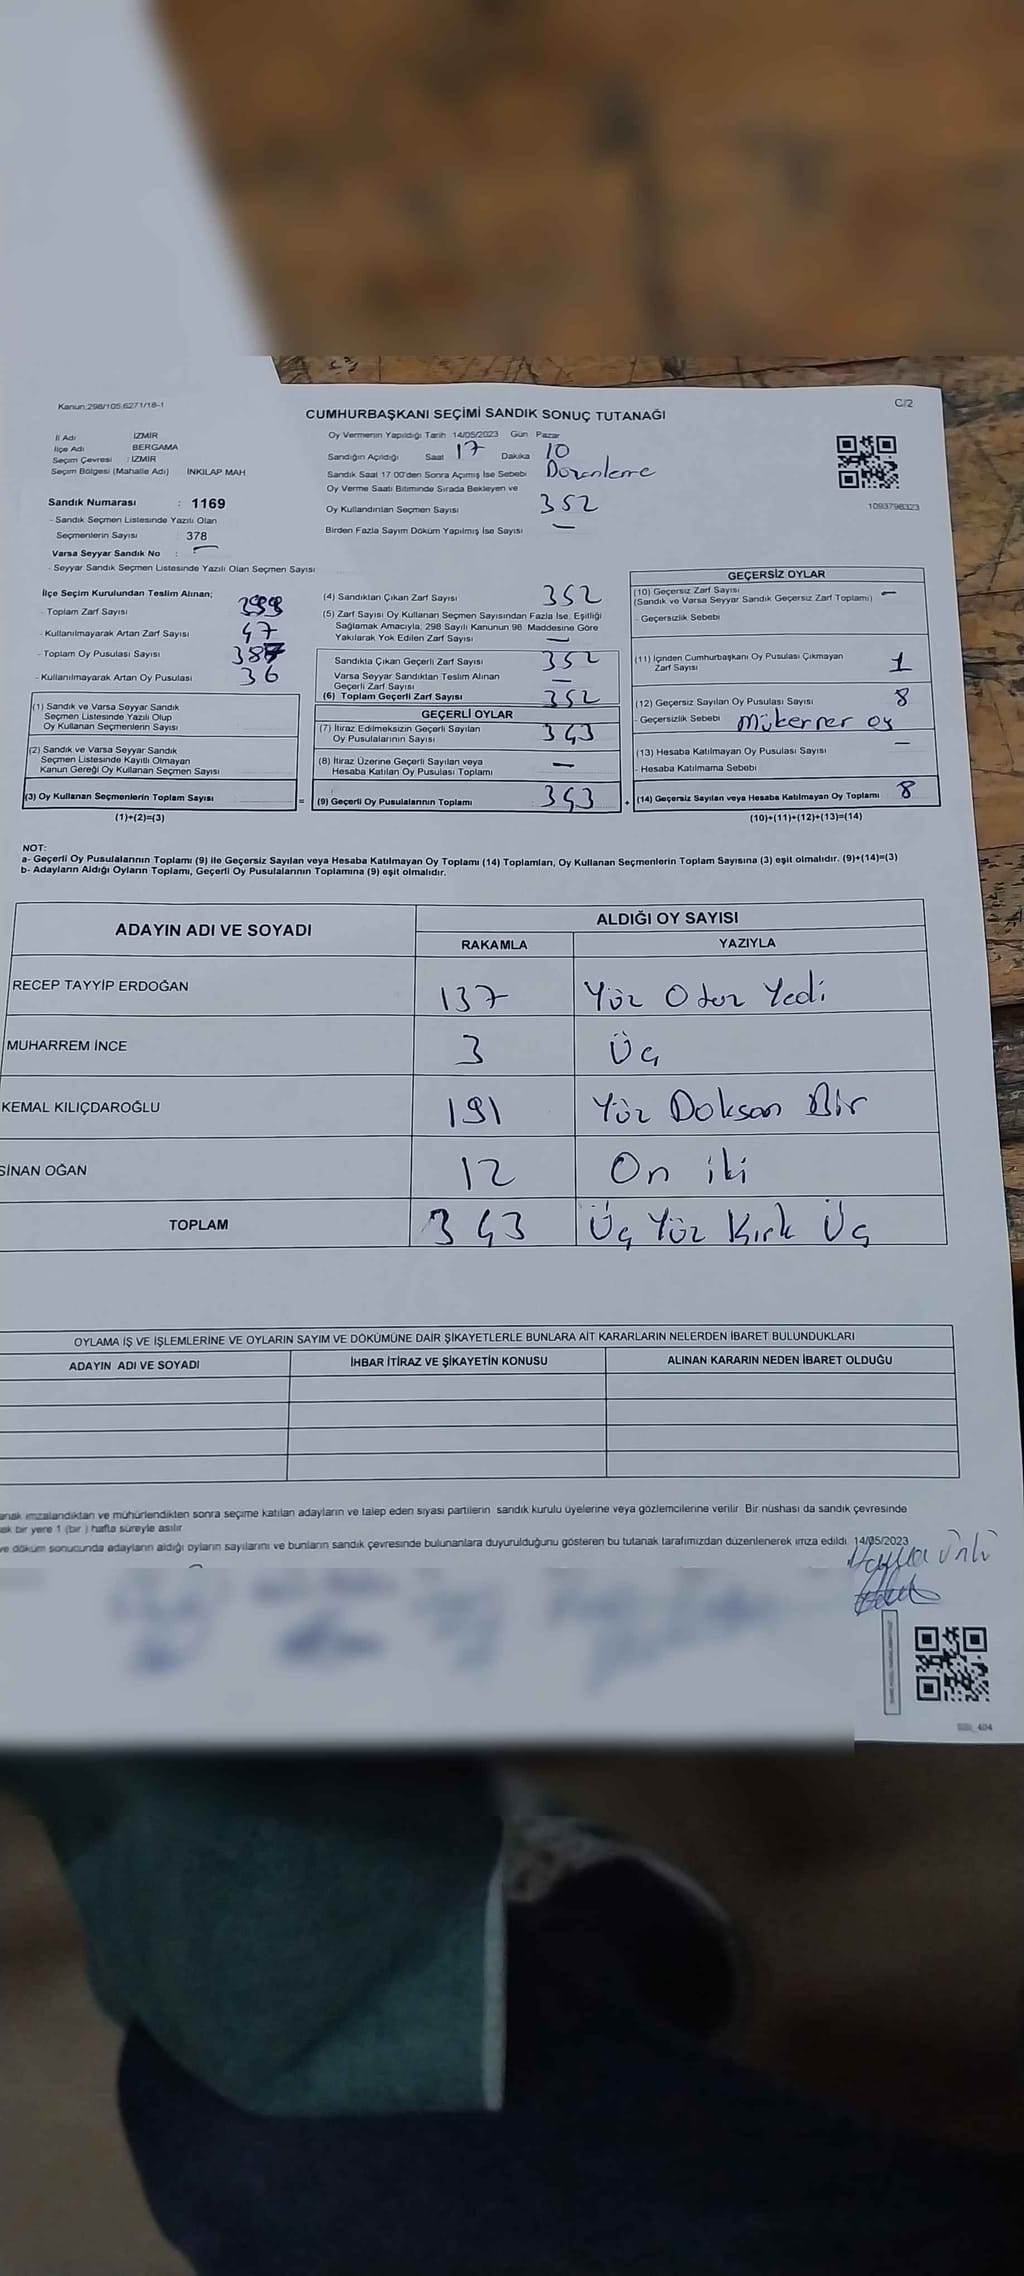 Kanun:298/105,6271/18-1
C/2
CUMHURBAŞKANI SEÇİMİ SANDIK SONUÇ TUTANAĞI
İl Adı : İZMİR
İlçe Adı : BERGAMA
Seçim Çevresi : İZMİR
Seçim Bölgesi (Mahalle Adı) İNKILAP MAH
Sandık Numarası : 1169
- Sandık Seçmen Listesinde Yazılı Olan
Seçmenlerin Sayısı 378
Varsa Seyyar Sandık No : —
- Seyyar Sandık Seçmen Listesinde Yazılı Olan Seçmen Sayısı
Oy Vermenin Yapıldığı Tarih 14/05/2023 Gün Pazar
Sandığın Açıldığı Saat 17 Dakika 10
Sandık Saat 17:00'den Sonra Açımış İse Sebebi Düzenleme
Oy Verme Saati Bitiminde Sırada Bekleyen ve
Oy Kullandırılan Seçmen Sayısı 352
Birden Fazla Sayım Döküm Yapılmış İse Sayısı —
1093798323
İlçe Seçim Kurulundan Teslim Alınan;
- Toplam Zarf Sayısı
- Kullanılmayarak Artan Zarf Sayısı 47
- Toplam Oy Pusulası Sayısı
- Kullanılmayarak Artan Oy Pusulası 36
(1) Sandık ve Varsa Seyyar Sandık
Seçmen Listesinde Yazılı Olup
Oy Kullanan Seçmenlerin Sayısı
(2) Sandık ve Varsa Seyyar Sandık
Seçmen Listesinde Kayıtlı Olmayan
Kanun Gereği Oy Kullanan Seçmen Sayısı
(3) Oy Kullanan Seçmenlerin Toplam Sayısı
(1)+(2)=(3)
=
(4) Sandıktan Çıkan Zarf Sayısı 352
(5) Zarf Sayısı Oy Kullanan Seçmen Sayısından Fazla İse, Eşitliği
Sağlamak Amacıyla, 298 Sayılı Kanunun 98. Maddesine Göre
Yakılarak Yok Edilen Zarf Sayısı —
Sandıkta Çıkan Geçerli Zarf Sayısı 352
Varsa Seyyar Sandıktan Teslim Alınan
Geçerli Zarf Sayısı —
(6) Toplam Geçerli Zarf Sayısı 352
GEÇERLİ OYLAR
(7) İtiraz Edilmeksizin Geçerli Sayılan
Oy Pusulalarının Sayısı 343
(8) İtiraz Üzerine Geçerli Sayılan veya
Hesaba Katılan Oy Pusulası Toplamı —
(9) Geçerli Oy Pusulalarının Toplamı 343
+
GEÇERSİZ OYLAR
(10) Geçersiz Zarf Sayısı
(Sandık ve Varsa Seyyar Sandık Geçersiz Zarf Toplamı) —
- Geçersizlik Sebebi
(11) İçinden Cumhurbaşkanı Oy Pusulası Çıkmayan
Zarf Sayısı 1
(12) Geçersiz Sayılan Oy Pusulası Sayısı 8
- Geçersizlik Sebebi Mükerrer oy
(13) Hesaba Katılmayan Oy Pusulası Sayısı —
- Hesaba Katılmama Sebebi
(14) Geçersiz Sayılan veya Hesaba Katılmayan Oy Toplamı 8
(10)+(11)+(12)+(13)=(14)
NOT:
a- Geçerli Oy Pusulalarının Toplamı (9) ile Geçersiz Sayılan veya Hesaba Katılmayan Oy Toplamı (14) Toplamları, Oy Kullanan Seçmenlerin Toplam Sayısına (3) eşit olmalıdır. (9)+(14)=(3)
b- Adayların Aldığı Oyların Toplamı, Geçerli Oy Pusulalarının Toplamına (9) eşit olmalıdır.
ADAYIN ADI VE SOYADI
ALDIĞI OY SAYISI
RAKAMLA YAZIYLA
RECEP TAYYİP ERDOĞAN 137 Yüz Otuz Yedi
MUHARREM İNCE 3 Üç
KEMAL KILIÇDAROĞLU 191 Yüz Doksan Bir
SİNAN OĞAN 12 On iki
TOPLAM 343 Üç Yüz Kırk Üç
OYLAMA İŞ VE İŞLEMLERİNE VE OYLARIN SAYIM VE DÖKÜMÜNE DAİR ŞİKAYETLERLE BUNLARA AİT KARARLARIN NELERDEN İBARET BULUNDUKLARI
ADAYIN ADI VE SOYADI İHBAR İTİRAZ VE ŞİKAYETİN KONUSU ALINAN KARARIN NEDEN İBARET OLDUĞU
anak imzalandıktan ve mühürlendikten sonra seçime katılan adayların ve talep eden siyasi partilerin sandık kurulu üyelerine veya gözlemcilerine verilir. Bir nüshası da sandık çevresinde
ak bir yere 1 (bir ) hafta süreyle asılır
ve döküm sonucunda adayların aldığı oyların sayılarını ve bunların sandık çevresinde bulunanlara duyurulduğunu gösteren bu tutanak tarafımızdan düzenlenerek imza edildi. 14/05/2023